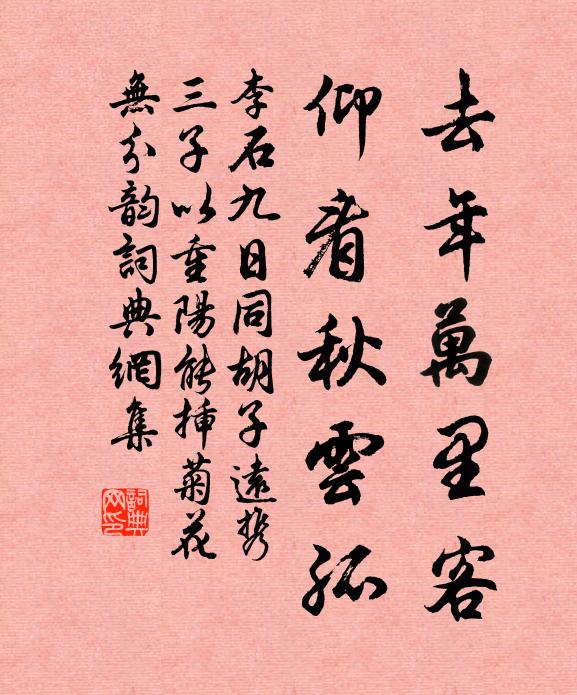 去年萬里客
仰看秋雲孤
李石九日同胡子遠携
三子以重陽能插菊花
無分韵詞典網集
詞典网印